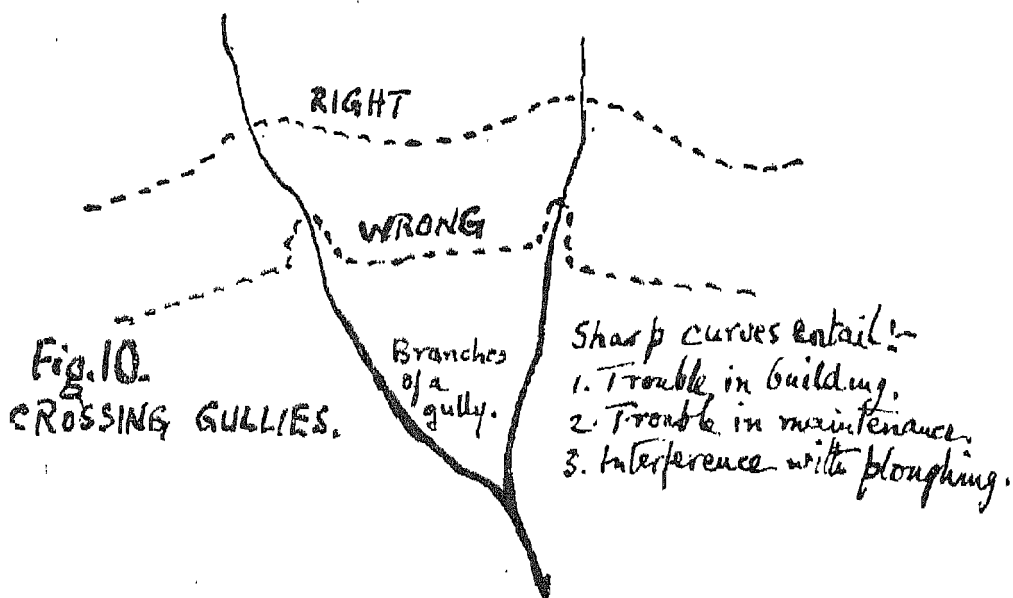 RIGHT
WRONG
Fig.10.
CROSSING GULLIES.
Branches
of a
gully.
Sharp curves entail:-
1. Trouble in building.
2. Trouble in maintenance.
3. Interference with ploughing.